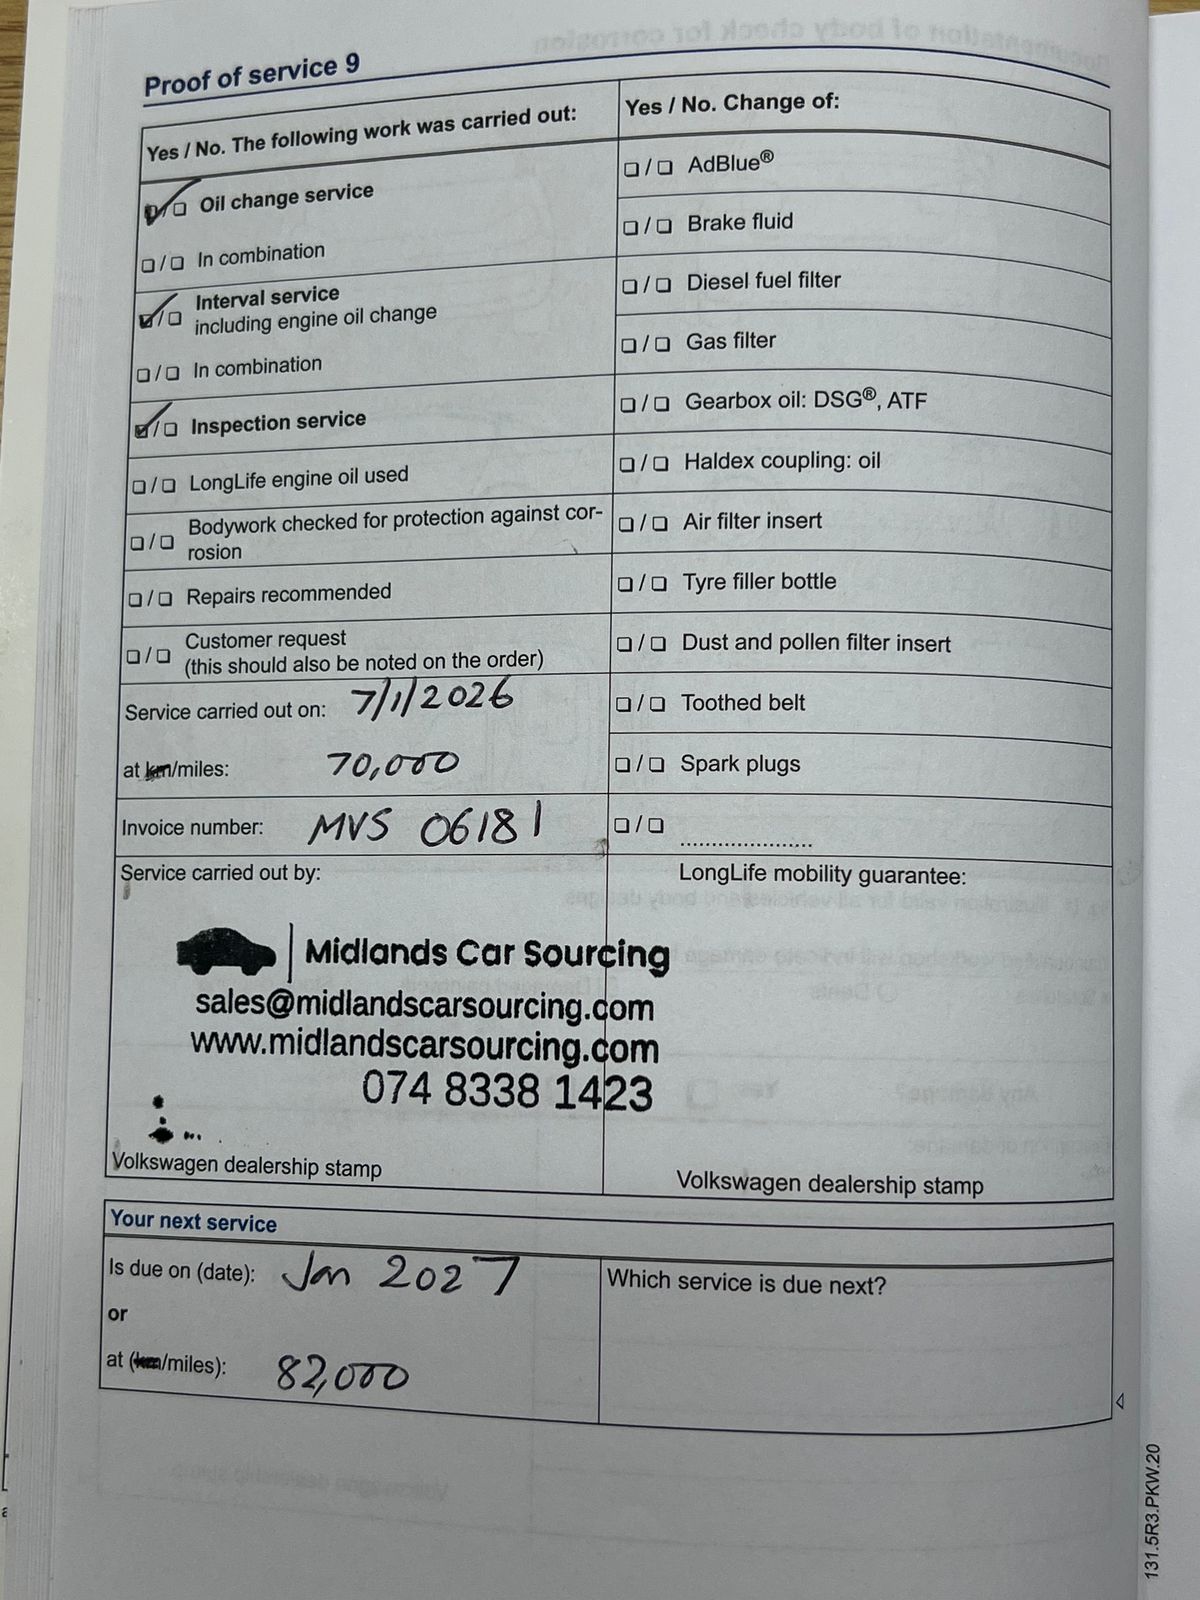 Proof of service 9
Yes / No. The following work was carried out:
Oil change service
In combination
Interval service
including engine oil change
In combination
Inspection service
LongLife engine oil used
Bodywork checked for protection against cor-
rosion
Repairs recommended
Customer request
(this should also be noted on the order)
Service carried out on: 7/1/2026
at km/miles: 70,000
Invoice number: MVS 06181
Yes / No. Change of:
AdBlue®
Brake fluid
Diesel fuel filter
Gas filter
Gearbox oil: DSG®, ATF
Haldex coupling: oil
Air filter insert
Tyre filler bottle
Dust and pollen filter insert
Toothed belt
Spark plugs
Service carried out by:
Midlands Car Sourcing
sales@midlandscarsourcing.com
www.midlandscarsourcing.com
074 8338 1423
Volkswagen dealership stamp
LongLife mobility guarantee:
Volkswagen dealership stamp
Your next service
Is due on (date): Jan 2027
or
at (km/miles): 82,000
Which service is due next?
131.5R3.PKW.20